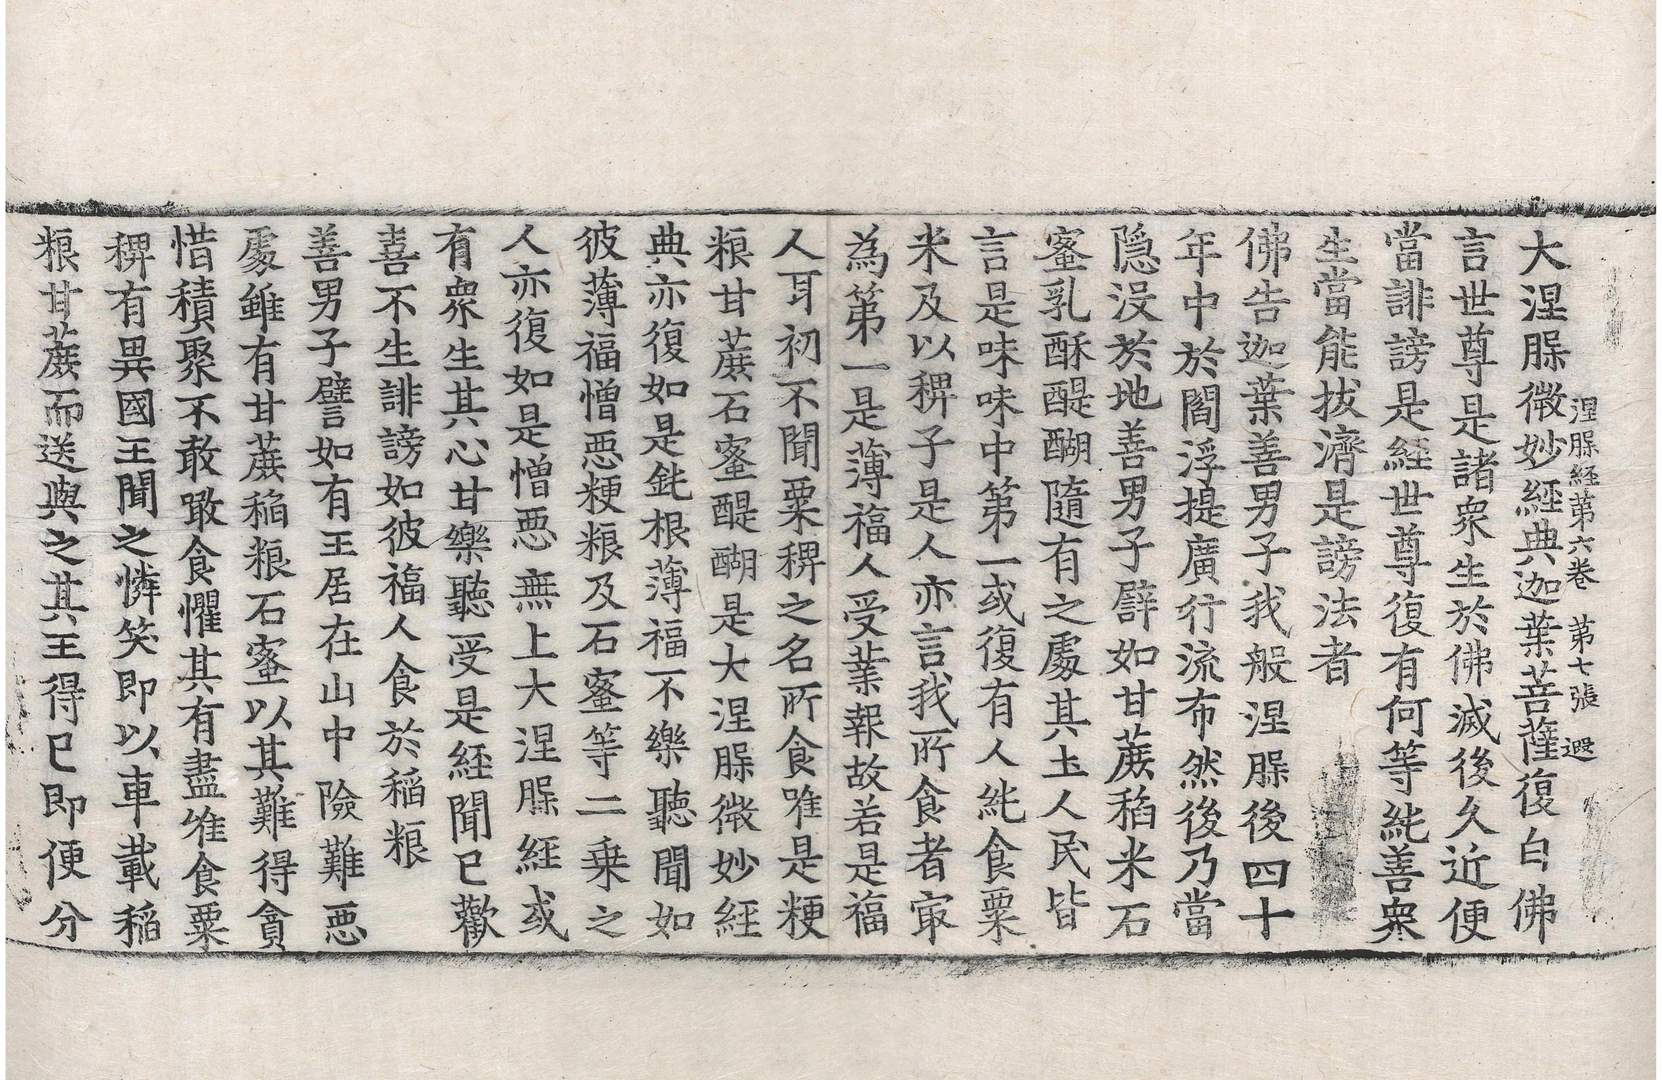 涅脲経第六巻　第七張　遐
大涅脲微妙經典迦葉菩薩復白佛
言世尊是諸衆生於佛滅後久近便
當誹謗是經世尊復有何等純善衆
生當能拔濟是謗法者
佛告迦葉善男子我般涅脲後四十
年中於閻浮提廣行流布然後乃當
隐没於地善男子譬如甘蔗稻米石
蜜乳酥醍醐隨有之處其土人民皆
言是味味中第一或復有人純食粟
米及以稗子是人亦言我所食者冣
為第一是薄福人受業報故若是福
人耳初不聞粟稗之名所食唯是粳
粮甘蔗石蜜醍醐是大涅脲微妙経
典亦復如是鈍根薄福不樂聽聞如
彼薄福憎惡粳粮及石蜜等二乗之
人亦復如是憎惡無上大涅脲経或
有衆生其心甘樂聽受是経聞已歡
喜不生誹謗如彼福人食於稻粮
善男子譬如有王居在山中險難惡
處雖有甘蔗稻粮石蜜以其難得貪
惜積聚不敢噉食懼其有盡唯食粟
稗有異國王聞之憐笑即以車載稻
粮甘蔗而送與之其王得已即便分